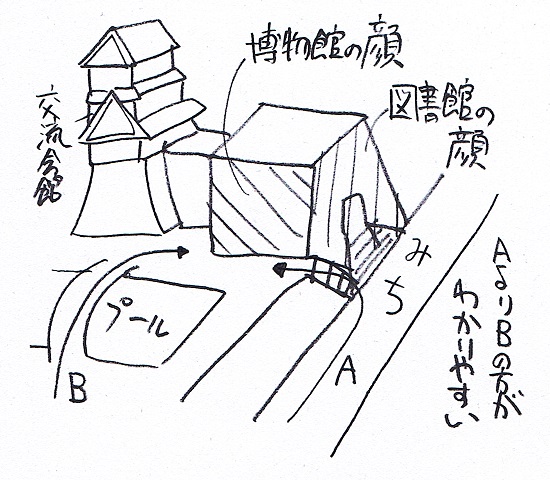 博物館の顔
図書館の
顔
交流会館
みち
プール
A
B
AよりBの方が
わかりやすい